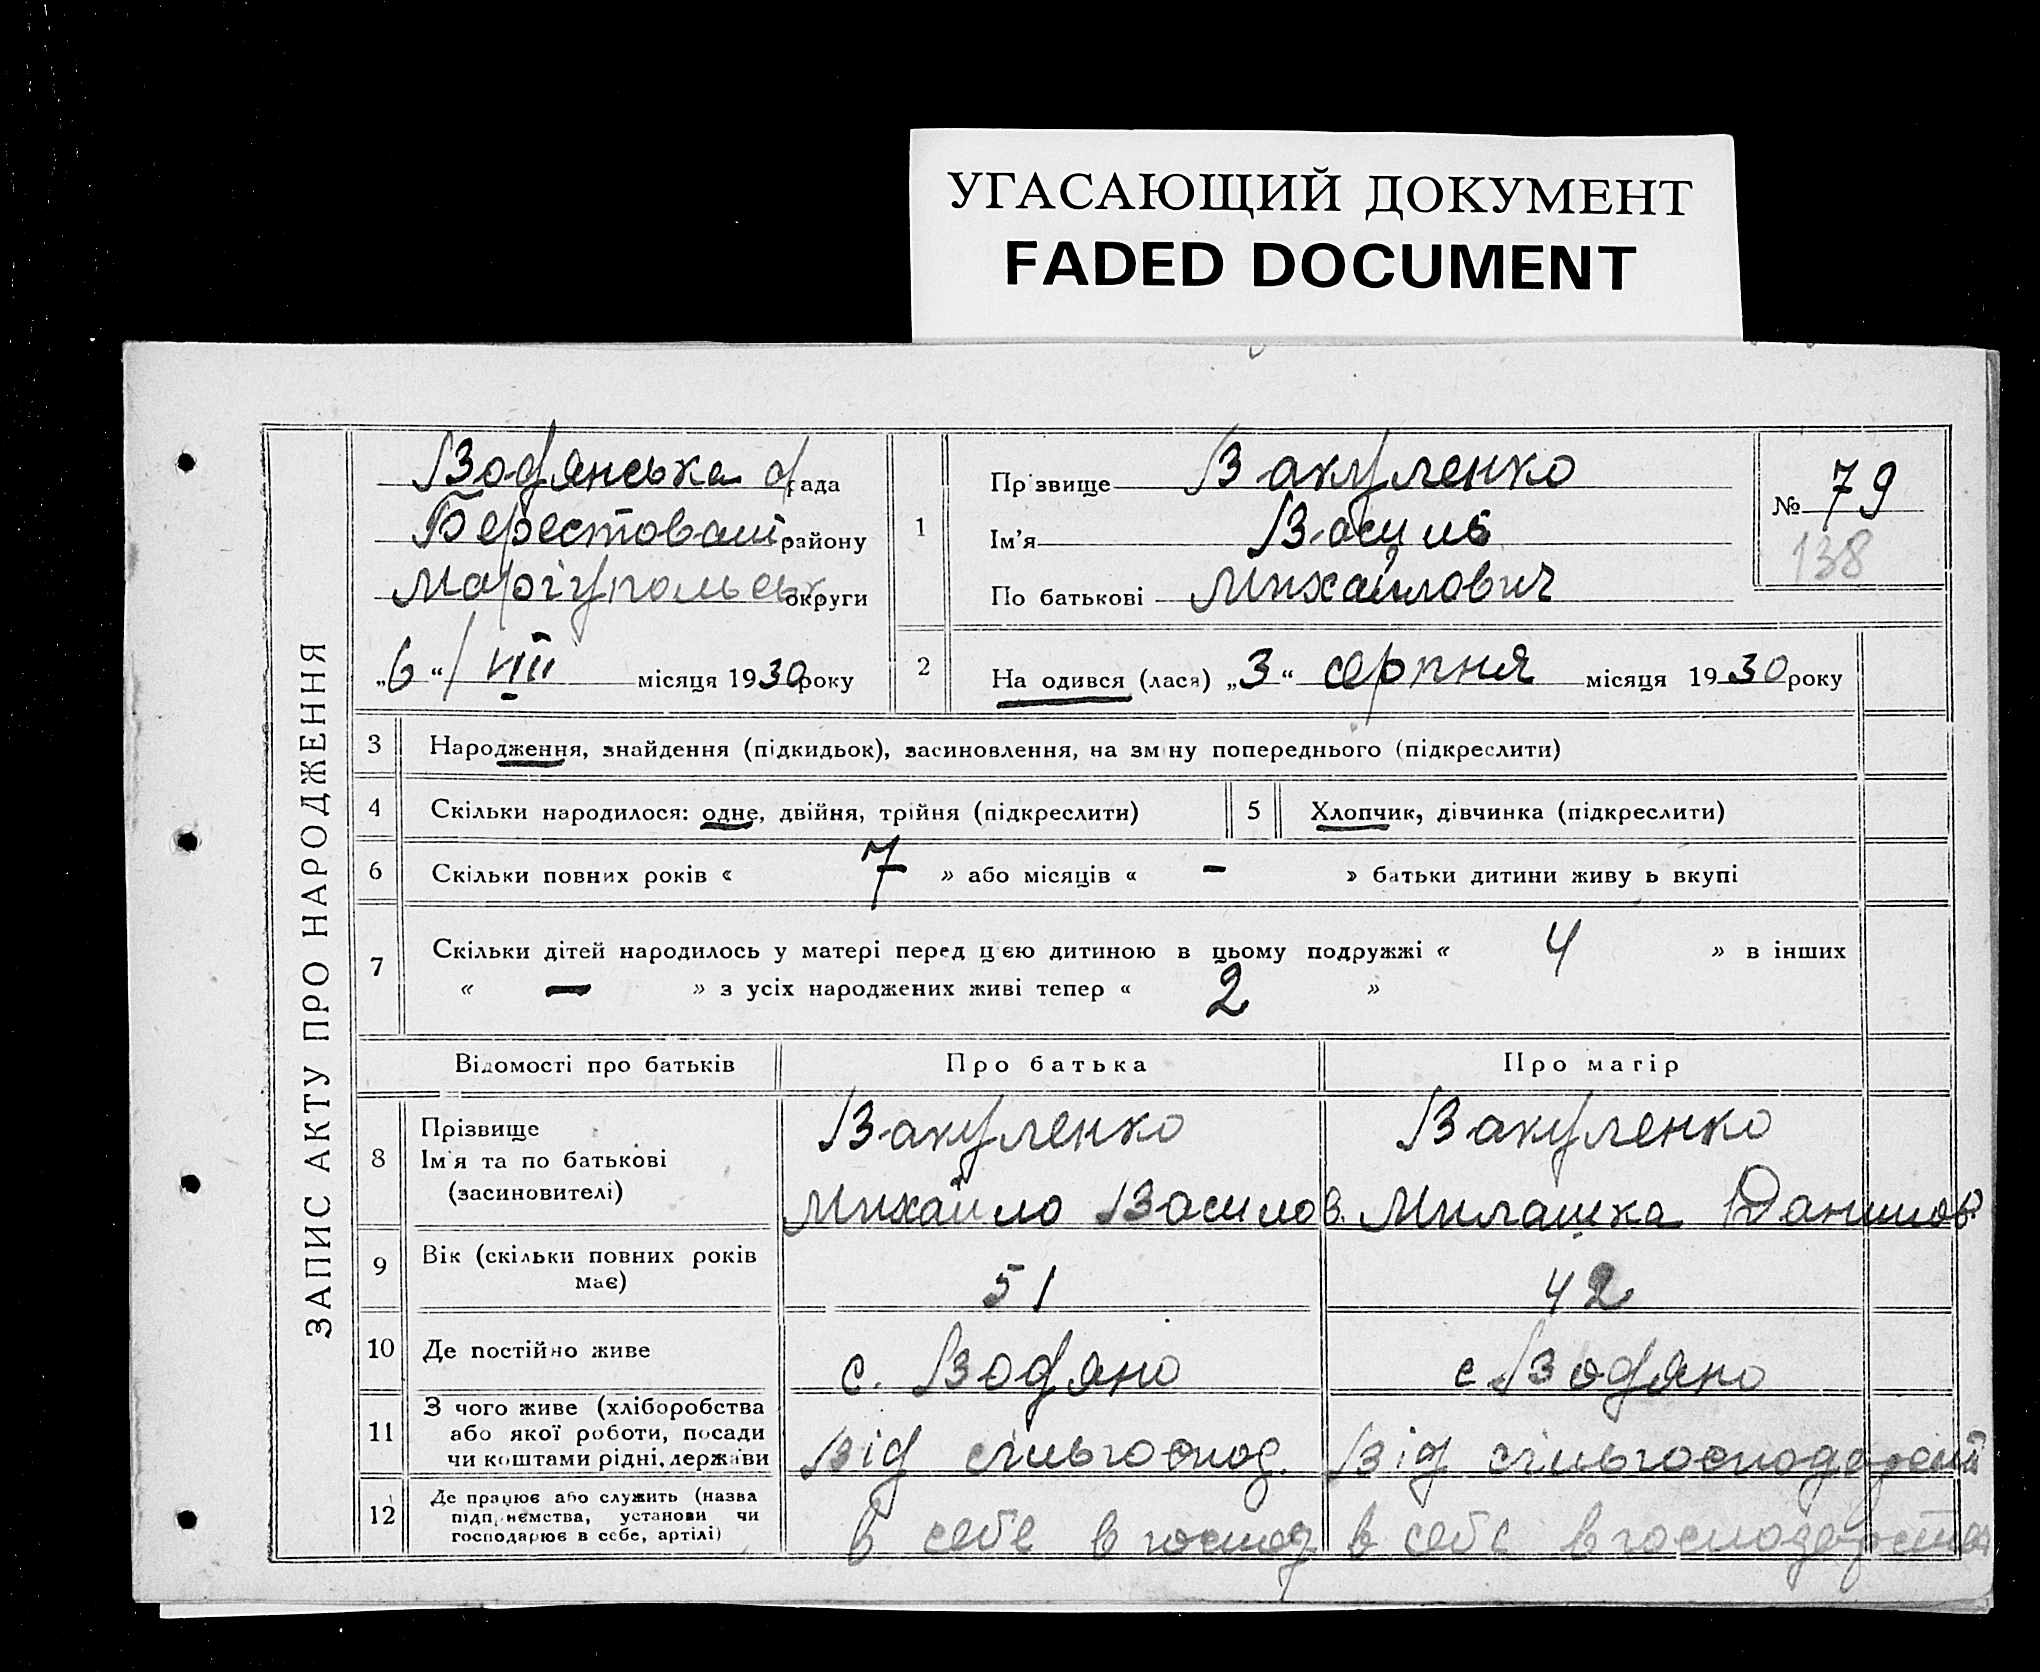 УГАСАЮЩИЙ ДОКУМЕНТ
FADED DOCUMENT
ЗАПИС АКТУ ПРО НАРОДЖЕННЯ
Водянська с/рада
Берестован району
Маріупольськ округи
„6“ / VIII місяця 1930 року
1
Прізвище Вакуленко
Ім'я Василь
По батькові Михайлович
№ 79
138
2
На одився (лася) „3“ серпня місяця 1930 року
3 Народження, знайдення (підкидьок), засиновлення, на зміну попереднього (підкреслити)
4 Скільки народилося: одне, двійня, трійня (підкреслити)
5 Хлопчик, дівчинка (підкреслити)
6 Скільки повних років « 7 » або місяців « - » батьки дитини живу ь вкупі
7 Скільки дітей народилось у матері перед цією дитиною в цьому подружжі « 4 » в інших
« — » з усіх народжених живі тепер « 2 »
Відомості про батьків Про батька Про матір
8 Прізвище Ім'я та по батькові (засиновителі)
Вакуленко Вакуленко
Михайло Василов. Милашка Данилов.
9 Вік (скільки повних років має) 51 42
10 Де постійно живе с. Водяно с Водяно
11 З чого живе (хліборобства
або якої роботи, посади
чи коштами рідні, держави
Від сільгоспод. Від сільгосподарст
12 Де працює або служить (назва
підприємства, установи чи
господарює в себе, артілі)
в себе в господ в себе в господарстві